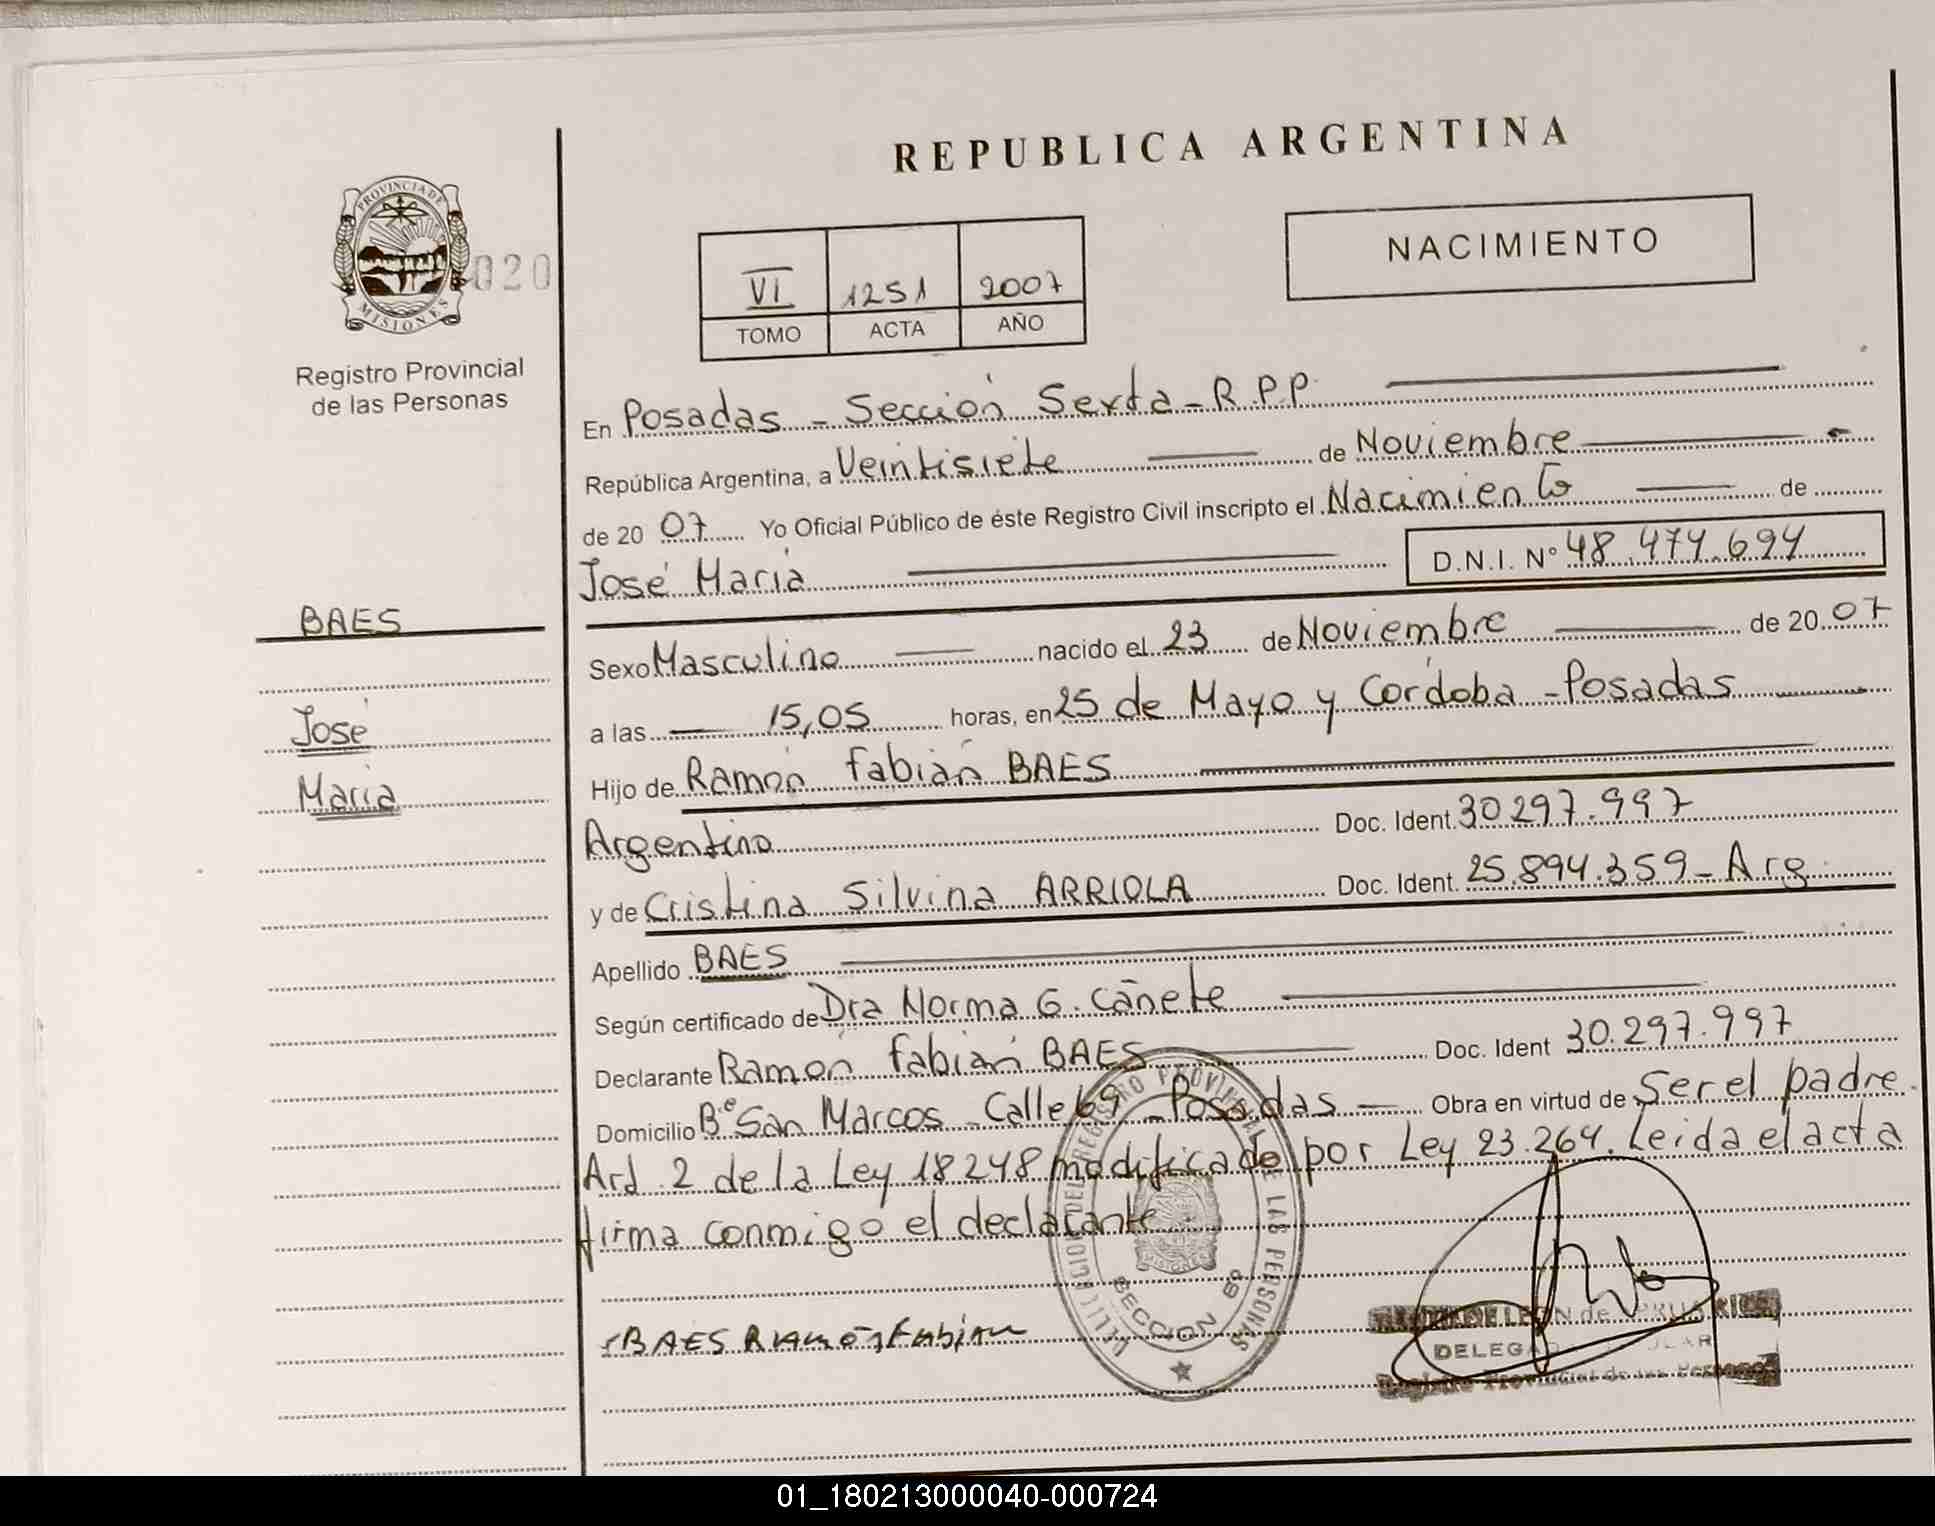 REPUBLICA ARGENTINA
PROVINCIA DE
MISIONES
020
Registro Provincial
de las Personas
NACIMIENTO
VI 1251 2007
TOMO ACTA AÑO
En Posadas - Sección Sexta - R.P.P.
República Argentina, a Veintisiete de Noviembre
de 20 07 Yo Oficial Público de éste Registro Civil inscripto el Nacimiento de
José María D.N.I. Nº 48.474.694
BAES
José
María
Sexo Masculino nacido el 23 de Noviembre de 20 07
a las 15,05 horas, en 25 de Mayo y Córdoba - Posadas
Hijo de Ramón Fabián BAES
Argentino Doc. Ident. 30297.997
y de Cristina Silvina ARRIOLA Doc. Ident. 25.894.359 - Arg.
Apellido BAES
Según certificado de Dra Norma G. Cañete
Declarante Ramón Fabián BAES Doc. Ident 30.297.997
Domicilio Bº San Marcos - Calle 69 - Posadas - Obra en virtud de Ser el padre.
Art. 2 de la Ley 18248 modificado por Ley 23.264. Leida el acta
firma conmigo el declarante
BAES RAMÓN Fabian
REGISTRO PROVINCIAL DE LAS PERSONAS
MISIONES
SECCION 6ª
DE LEON de
DELEGADO
Registro Provincial de las Personas
01_180213000040-000724